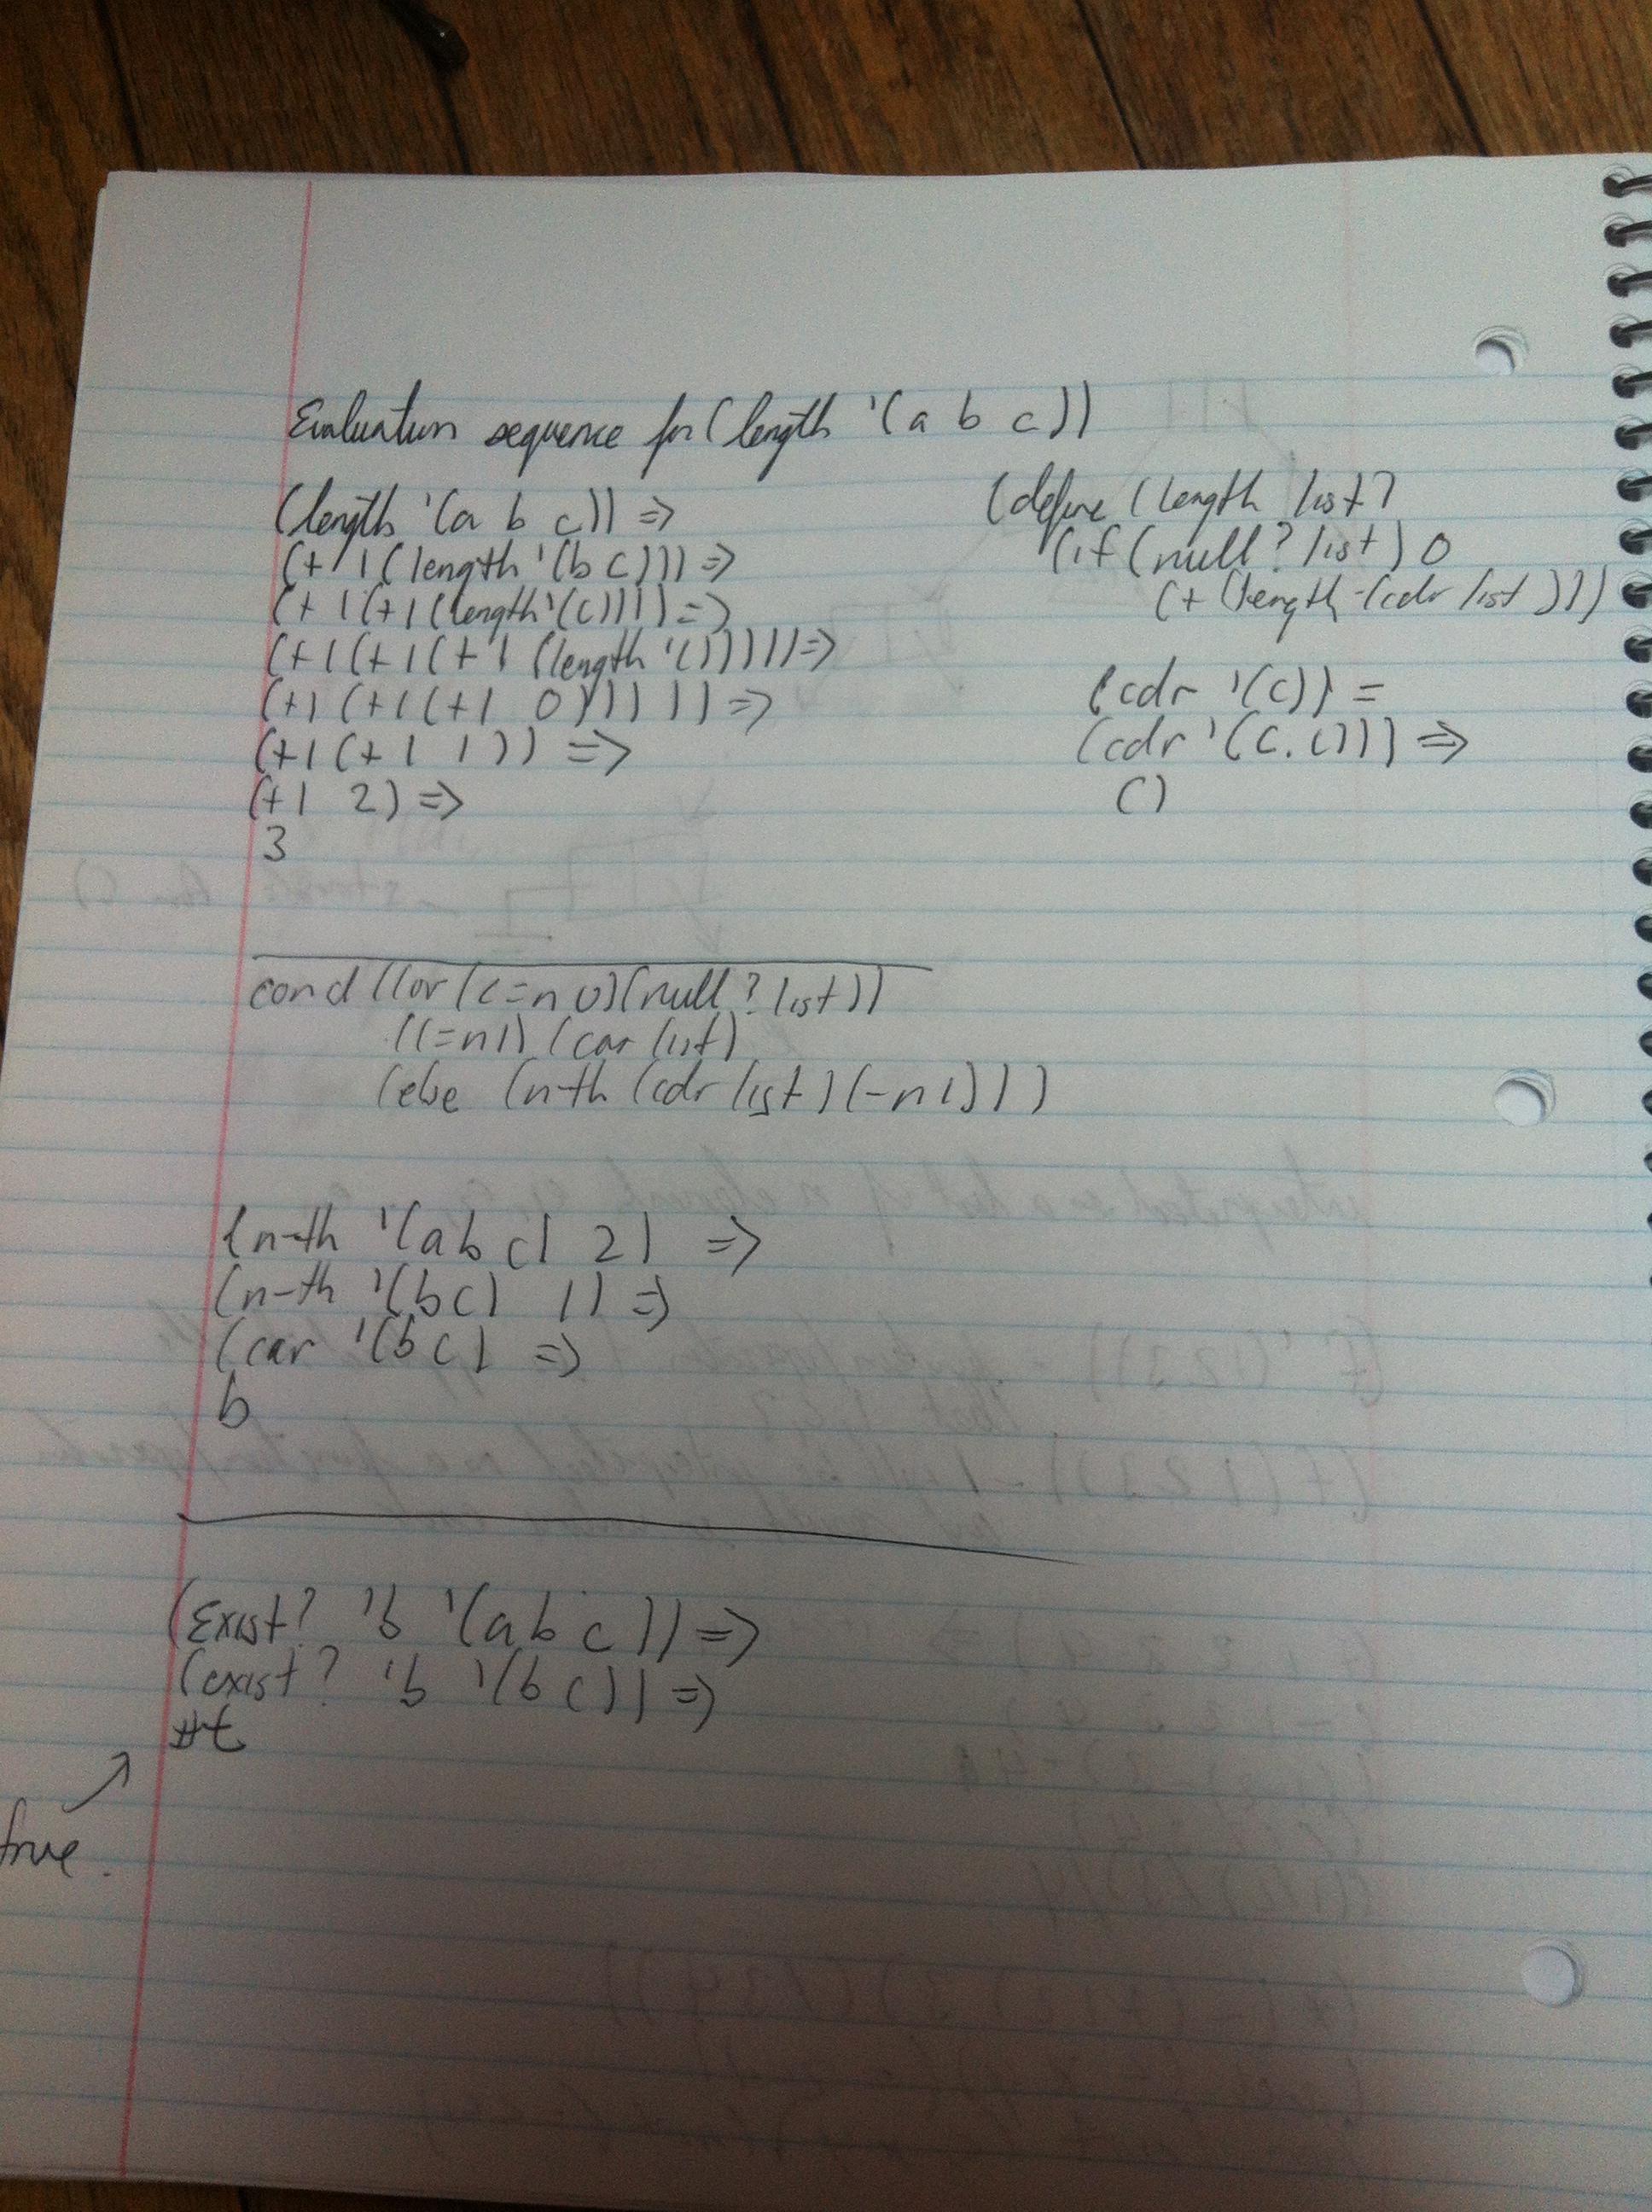 Evaluation sequence for (length '(a b c))
(length '(a b c)) =>
(+ 1 (length '(b c))) =>
(+ 1 (+ 1 (length '(c)))) =>
(+1 (+1 (+ 1 (length '()))))) =>
(+1 (+1 (+1 0))))) =>
(+1 (+1 1)) =>
(+1 2) =>
3
(define (length list)
(if (null? list) 0
(+ (length (cdr list)))
(cdr '(c)) =
(cdr '(c.())) =>
()
cond ((or (<= n 0) (null? list))
((= n 1) (car list)
(else (n-th (cdr list) (- n 1)))
(n-th '(a b c) 2) =>
(n-th '(b c) 1) =>
(car '(b c) =>
b
(Exist? 'b '(a b c)) =>
(exist? 'b '(b c)) =>
#t
true.